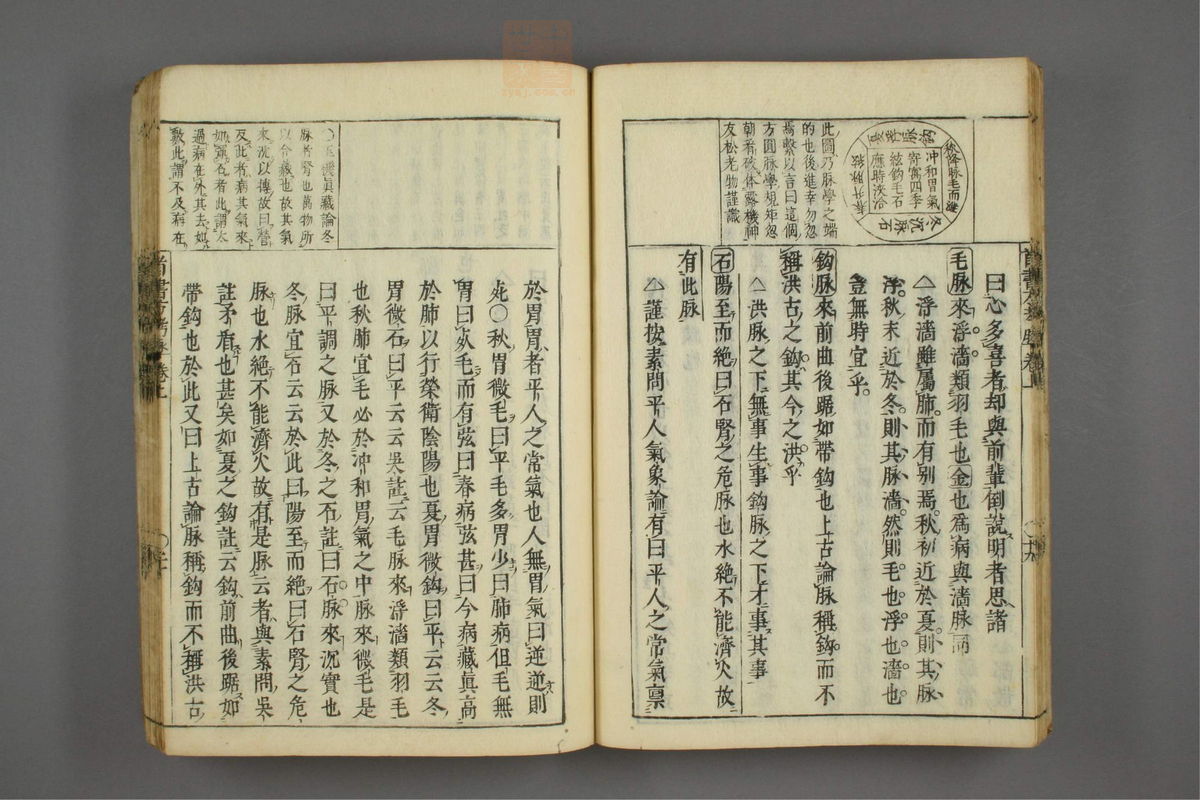 此圖乃脉學之端
的也後進幸勿忽
焉繫以言曰這個
方圓脉學規矩忽
朝看破体露機神
友松老物謹識
冲和胃氣
寄寓四季
弦鈎毛石
應時浹洽
秋浮脉毛而濇
冬沉脉石
曰心多喜者却與前輩倒説明者思諸
毛脉來浮濇類羽毛也金也爲病與濇脉同
△浮濇雖屬肺而有别焉秋初近於夏則其脉
浮秋末近於冬則其脉濇然則毛也浮也濇也
豈無時宜乎
鈎脉來前曲後踞如帶鈎也上古論脉稱鈎而不
稱洪古之鈎其今之洪乎
△洪脉之下無事生事鈎脉之下才事其事
石陽至而絶曰石腎之危脉也水絶不能濟火故
有此脉
△謹按素問平人氣象論有曰平人之常氣禀
於胃胃者平人之常氣也人無胃氣曰逆逆則
死○秋胃微毛曰平毛多胃少曰肺病但毛無
胃曰死毛而有弦曰春病弦甚曰今病藏眞高
於肺以行榮衛陰陽也夏胃微鈎曰平云云冬
胃微石曰平云云吳註云毛脉來浮濇類羽毛
也秋肺宜毛必於冲和胃氣之中脉來微毛是
曰平調之脉又於冬之石註曰石脉來沉實也
冬脉宜石云云於此曰陽至而絶曰石腎之危
脉也水絶不能濟火故有是脉云者與素問吳
註矛盾也甚矣如夏之鈎註云鈎前曲後踞如
帶鈎也於此又曰上古論脉稱鈎而不稱洪古
○玉機眞藏論冬
脉者腎也萬物所
以合藏也故其氣
來沉以搏故曰營
反此者病其氣來
如彈石者此謂太
過病在外其去如
數此謂不及病在